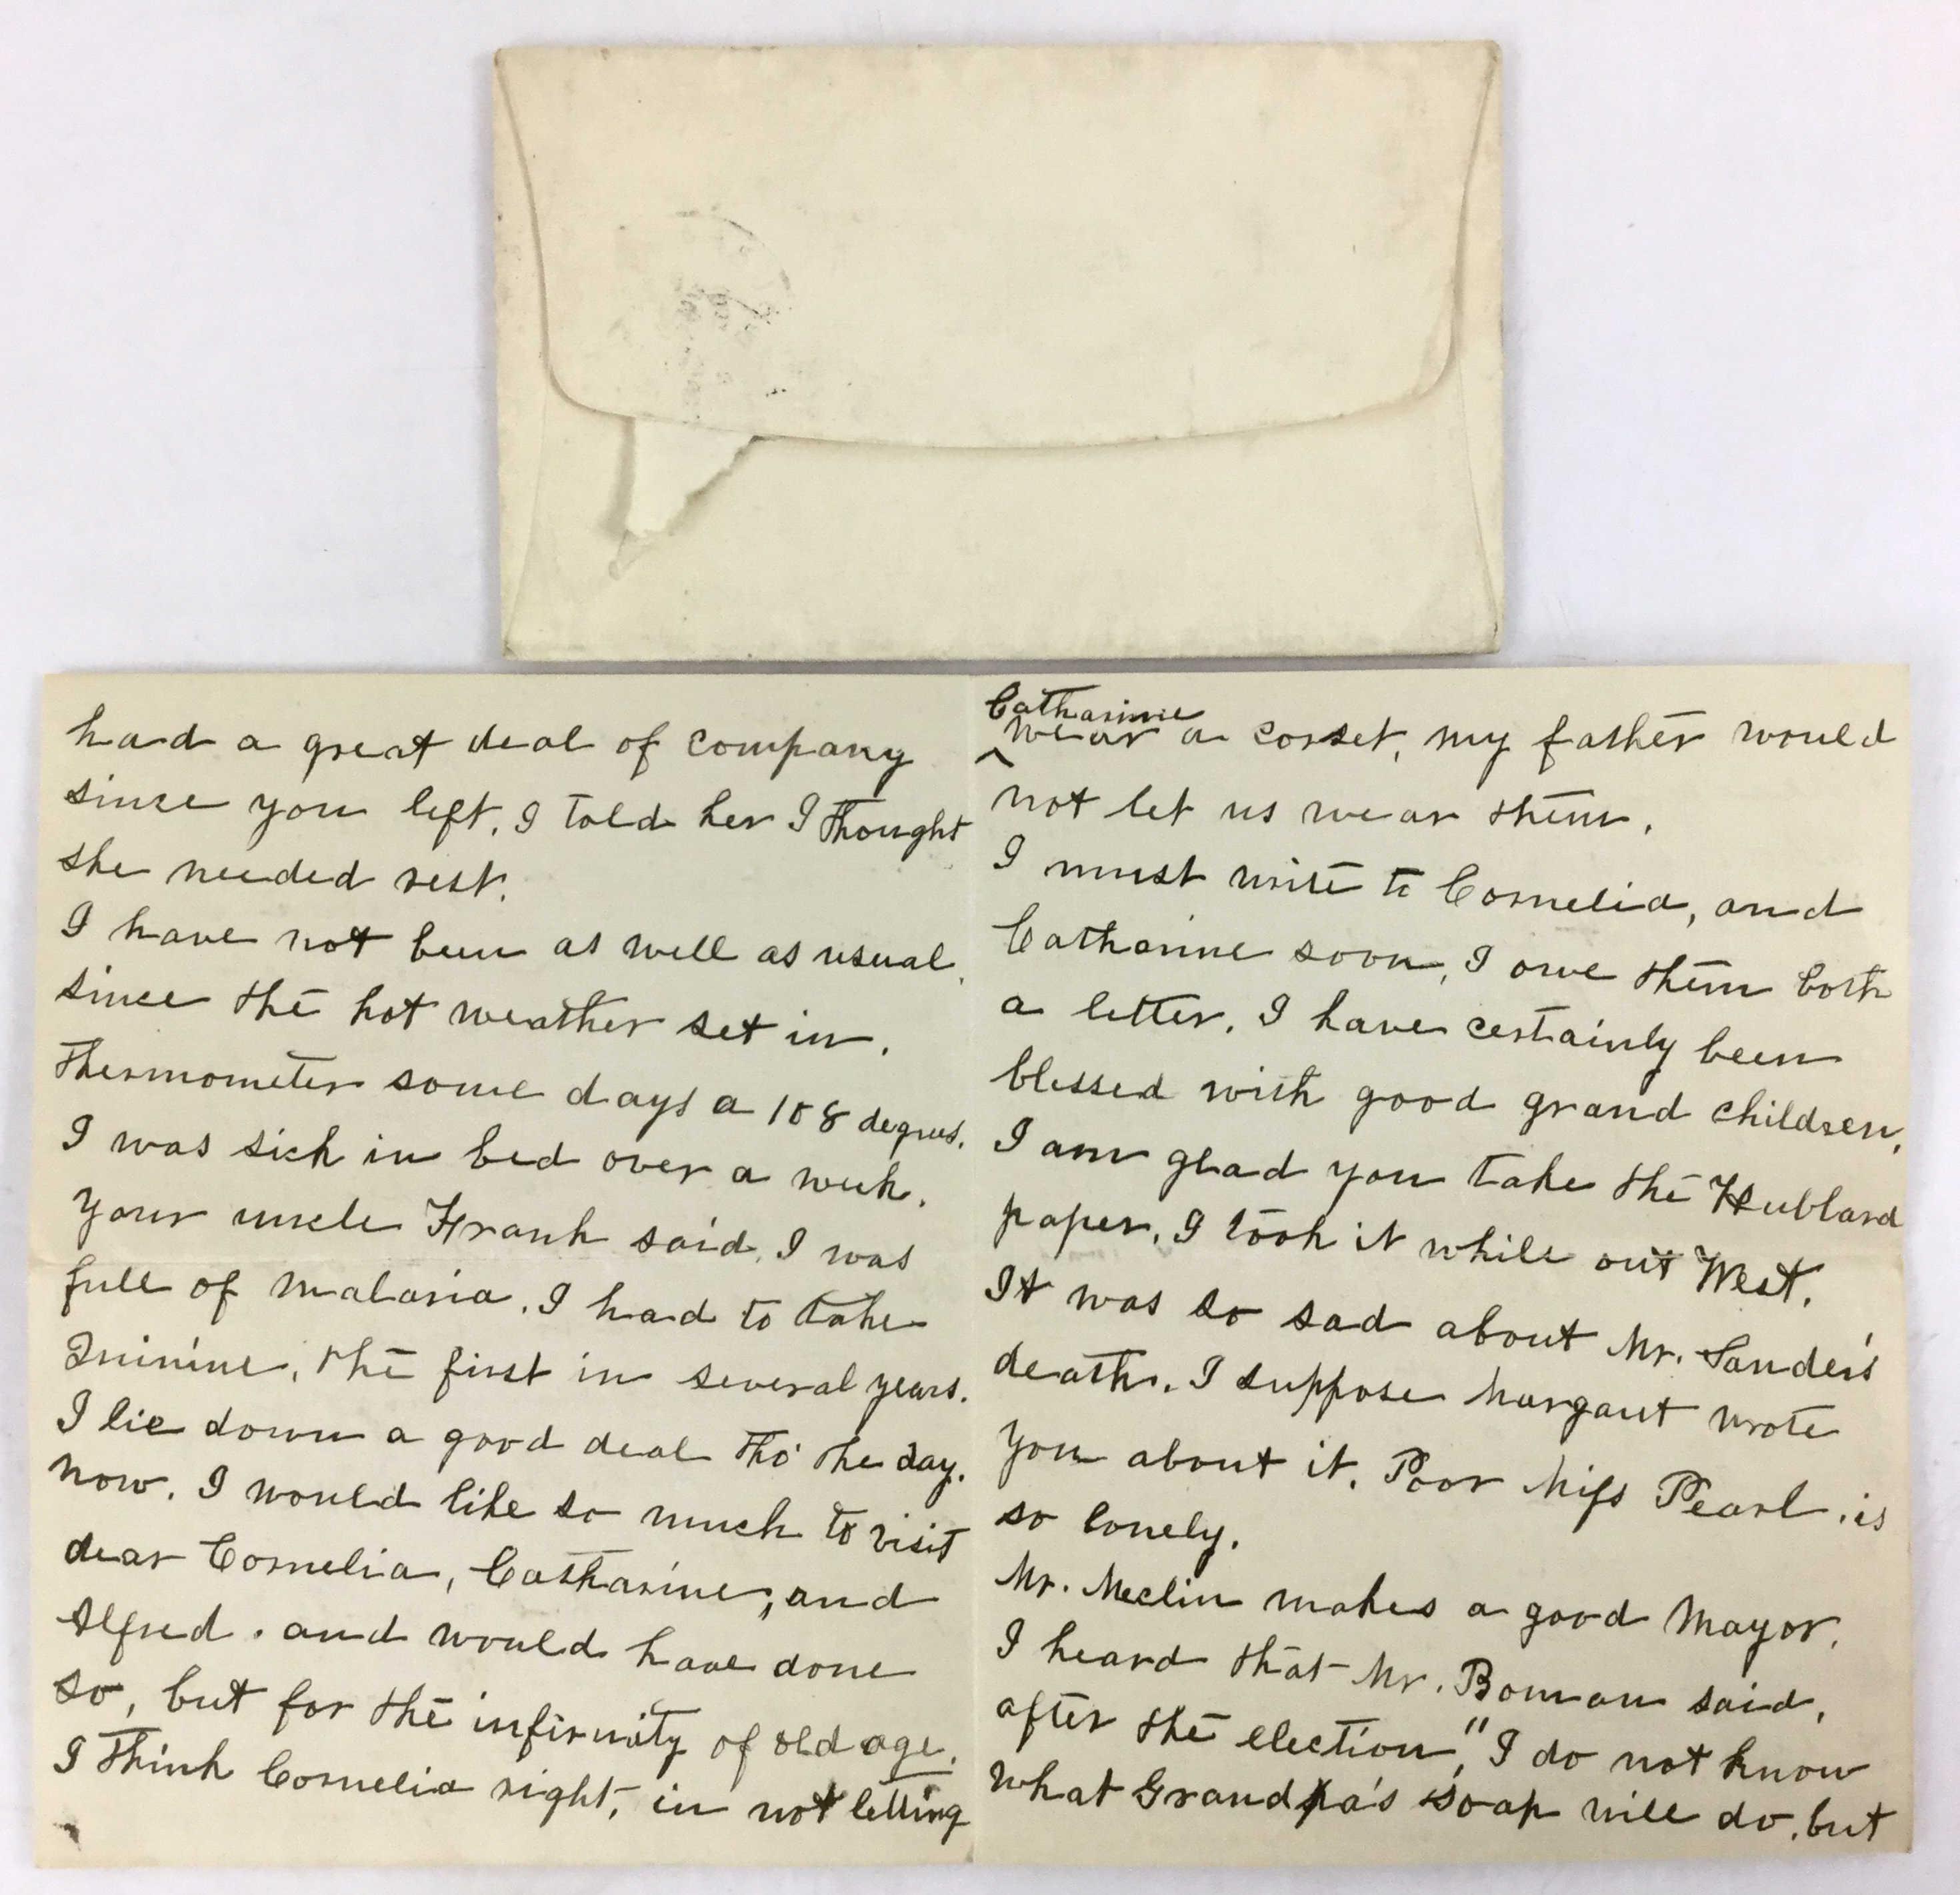 had a great deal of company
since you left. I told her I thought
she needed rest.
I have not been as well as usual,
since the hot weather set in.
Thermometer some days a 108 degrees.
I was sick in bed over a week.
Your uncle Frank said, I was
full of malaria. I had to take
Quinine, the first in several years.
I lie down a good deal tho' the day.
now. I would like so much to visit
dear Cornelia, Catharine, and
Alfred. and would have done
so, but for the infirmity of old age.
I think Cornelia right, in not letting
Catharine
^ wear a corset, my father would
not let us wear them.
I must write to Cornelia, and
Catharine soon, I owe them both
a letter. I have certainly been
blessed with good grand children.
I am glad you take the Hubbard
paper. I took it while out West.
It was so sad about Mr. Sander's
death. I suppose Margaret wrote
you about it. Poor Miss Pearl, is
so lonely.
Mr. Meclin makes a good Mayor.
I heard that Mr. Boman said,
after the election, "I do not know
what Grandpa's soap will do, but